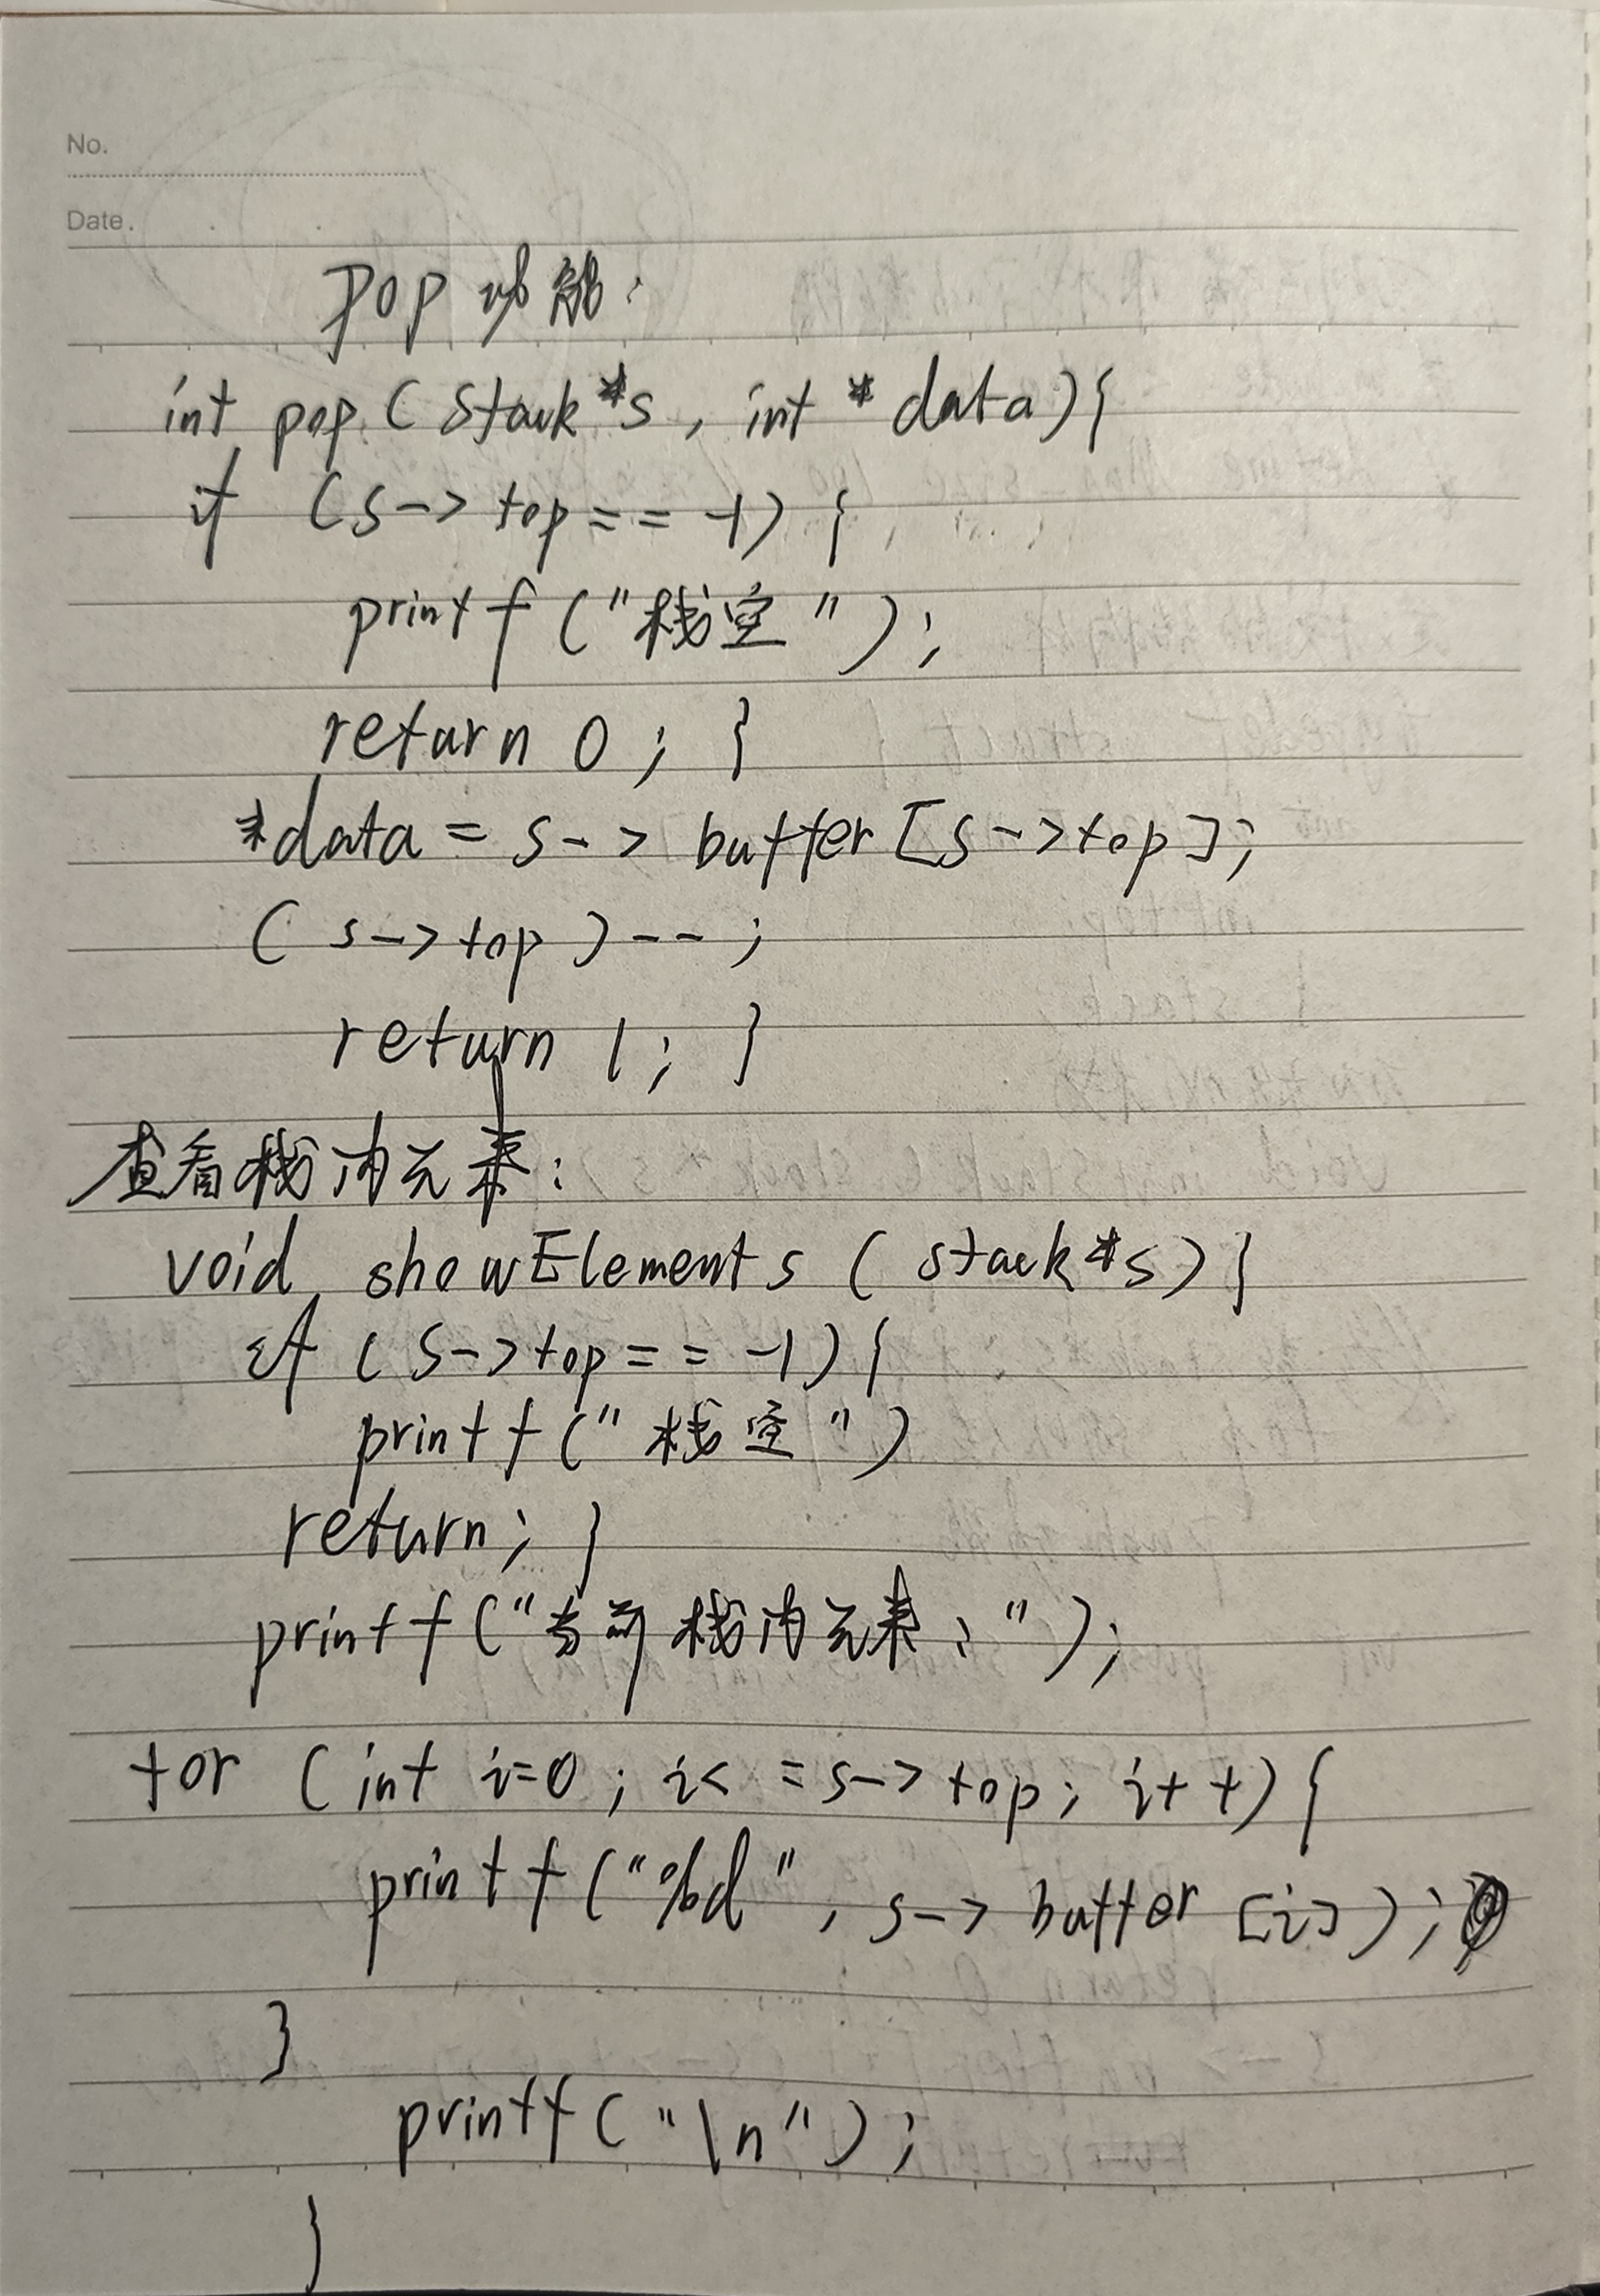 No.
Date.
pop功能:
int pop(Stack*s, int * data){
if (s->top == -1) {
printf("栈空");
return 0; }
*data = s-> buffer[s->top];
(s->top)--;
return 1; }
查看栈内元素:
void showElements (stack*s){
if (s->top == -1){
printf("栈空")
return; }
printf("当前栈内元素:");
for (int i=0; i< =s->top; i++){
printf("%d", s-> buffer [i]);
}
printf("\n");
}